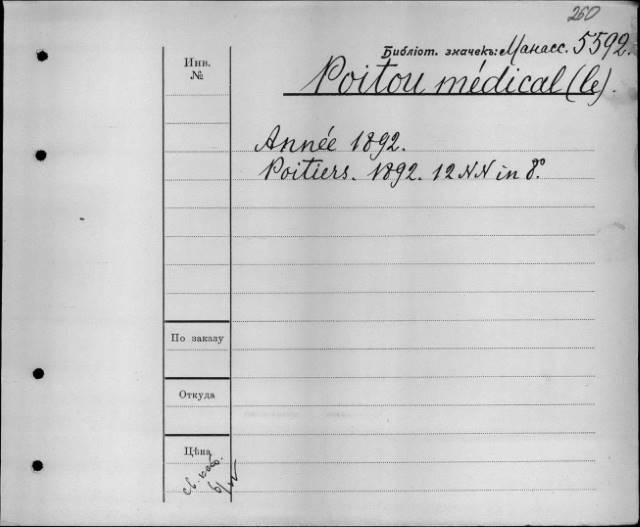 260
Библіот. значекъ: Манасс. 5592.
Инв.
№
Poitou médical (le).
Année 1892.
Poitiers. 1892. 12 NN in 8°.
По заказу
Откуда
Цѣна